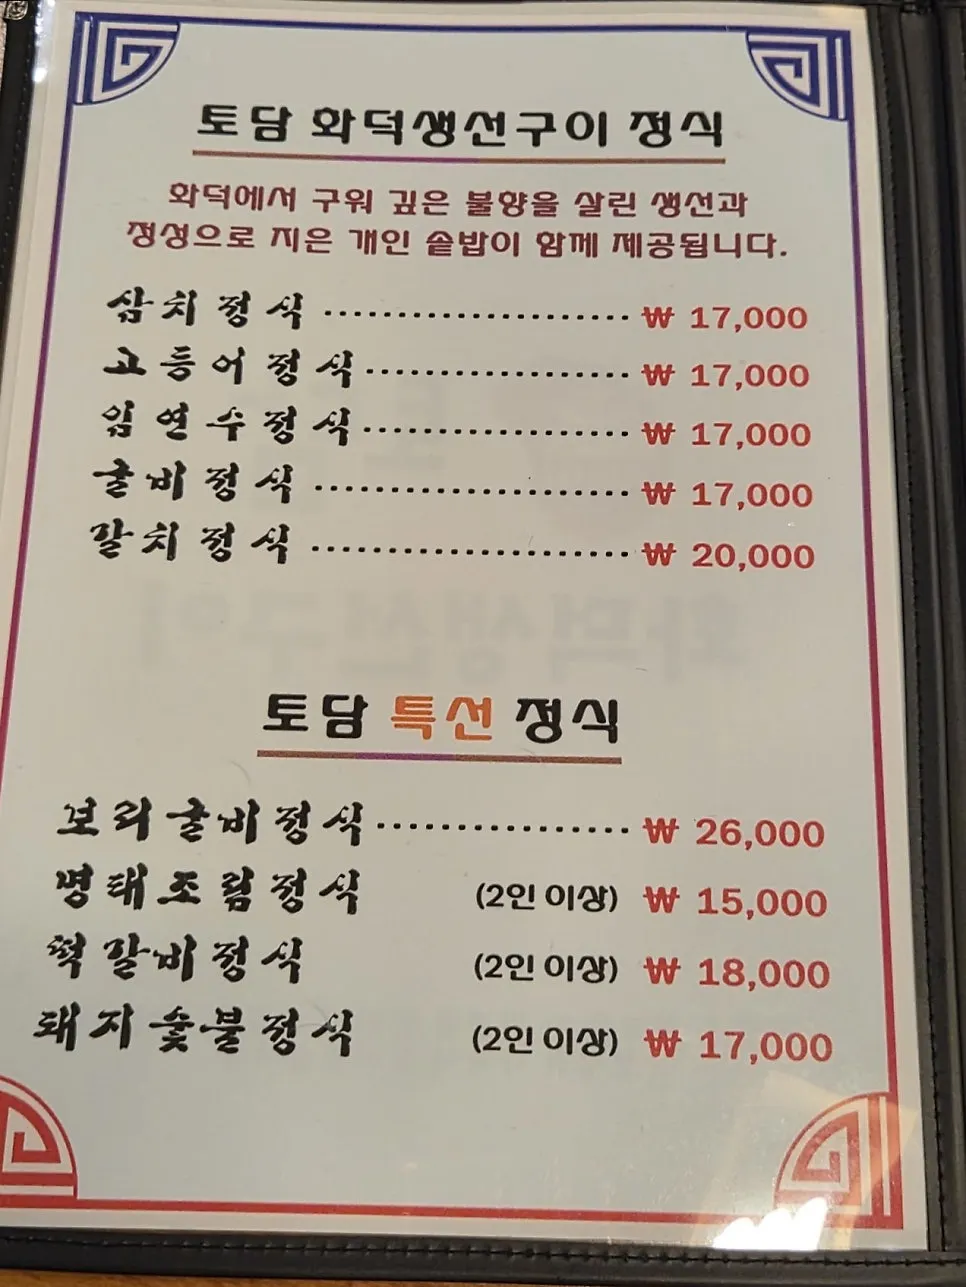 토담 화덕생선구이 정식
화덕에서 구워 깊은 불향을 살린 생선과
정성으로 지은 개인 솥밥이 함께 제공됩니다.
삼치정식 ₩ 17,000
고등어정식 ₩ 17,000
임연수정식 ₩ 17,000
굴비정식 ₩ 17,000
갈치정식 ₩ 20,000
토담 특선 정식
보리굴비정식 ₩ 26,000
명태조림정식 (2인 이상) ₩ 15,000
떡갈비정식 (2인 이상) ₩ 18,000
돼지숯불정식 (2인 이상) ₩ 17,000